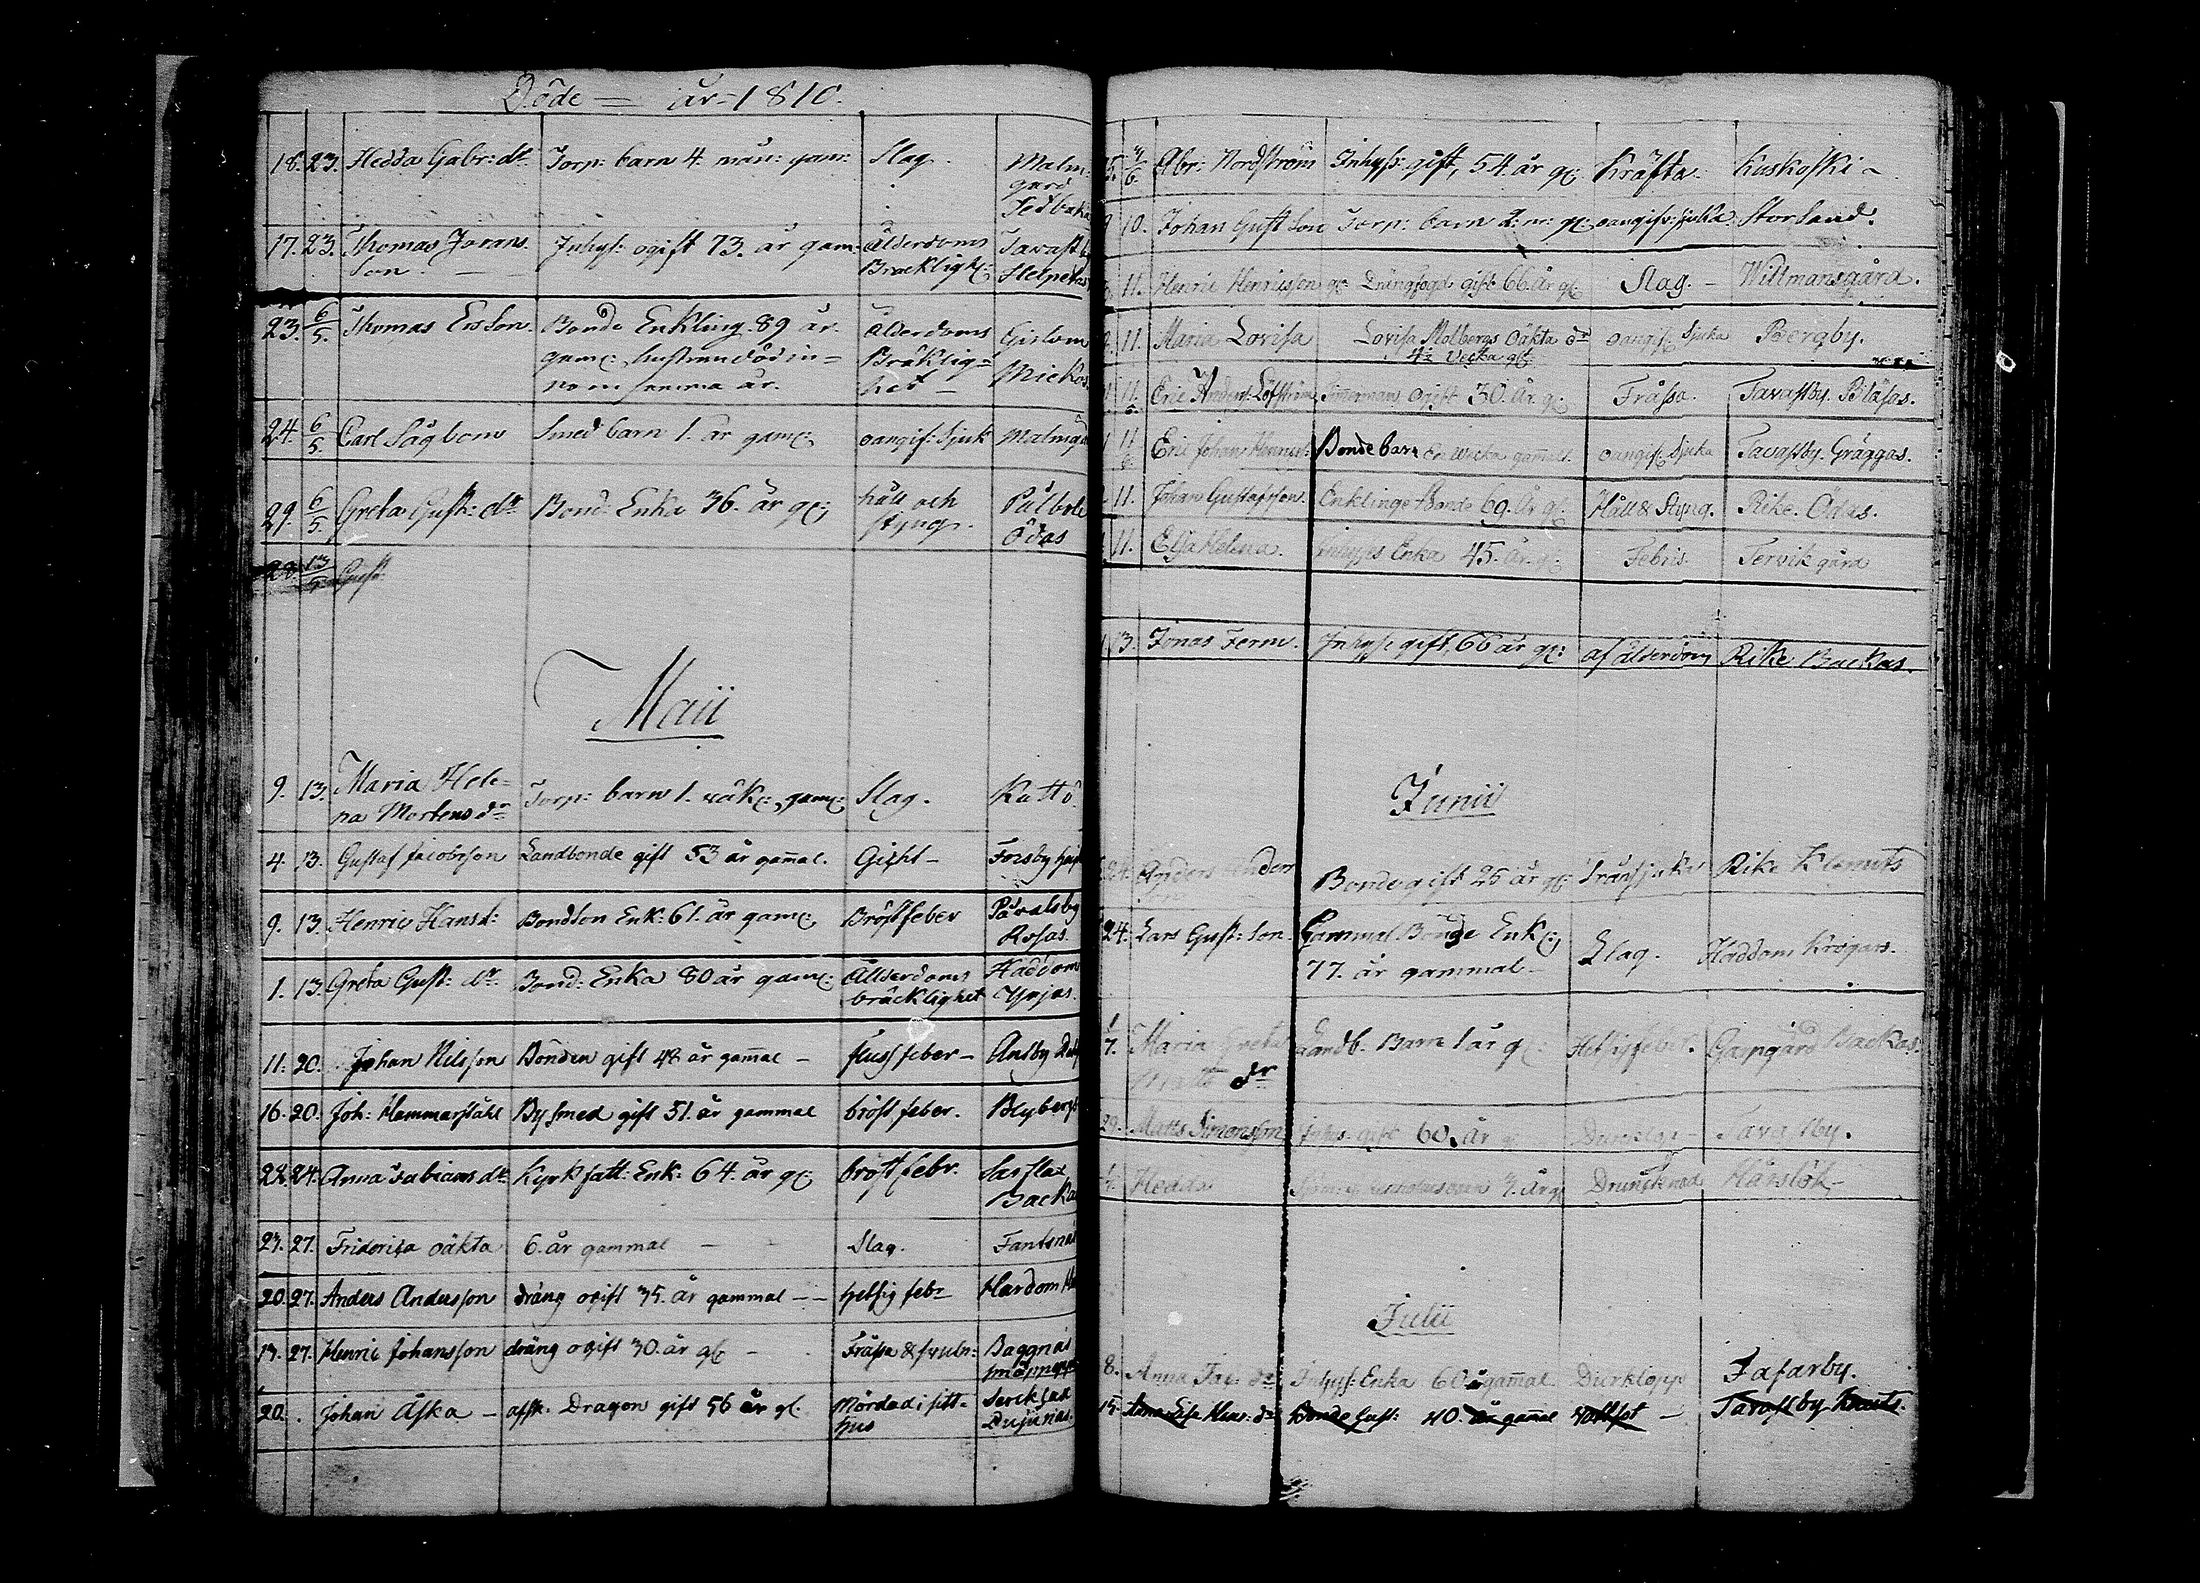 Döde = år 1810.
18. 23. Hedda Gabr: dr Torp: barn 4. mån: gam: Slag. Malm-
gård
Tedbacka
17. 23. Thomas Jörans Inhys: ogift 73. år gam: ålderdoms Tavastby
Son Bräcklighet:
23. 6/5. Thomas Ersson Bonde Enkling 89 år ålderdoms Gislom
gam: hustrun död in= Bräklig= Mickos
nom samma år. het
24. 6/5. Carl Sågbom Smed barn 1. år gam: oangif: Sjuk Malmgå
29. 6/5. Greta Gust: dr Bond: Enka 36. år gl: håll och Pålböle
styng. Ödas
28. 13 Gust
Maii
9. 13. Maria Hele= Torp: barn 1. väk: gam: Slag. Kattö
na Mortens dr
4. 13. Gustaf Jacobsson Landbonde gift 53 år gamal. Gicht Forsby
9. 13. Henric Hansd: Bondson Enk: 61. år gam: Bröstfeber Påvalsby
Rosas.
1. 13. Greta Gust: dr. Bond: Enka 80 år gam: Ålderdoms Haddom
bräcklighet Yrjas.
11. 20. Johan Nilsson Bonden gift 48 år gamal flussfeber Andby
16. 20. Joh: Hammarståhl Bysmed gift 51. år gammal bröst feber. Blyberg
22. 24. Anna Fabians dr Kyrkfatt: Enk: 64. år gl: bröstfebr. Sarflax
Backas
27. 27. Friderica oäkta 6. år gammal Slag. Fantsnäs
20. 27. Anders Andersson dräng ogift 35. år gammal hetsig febr Hardom
17. 27. Henric Johansson dräng ogift 30. år gl: Fråssa & Baggnäs
20. Johan Aska afsk. Dragon gift 56 år gl. Mördad i sitt= Sercklax
hus
5. 4/6. Abr: Nordström Inhys: gift, 54 år gl: Kräfta Kuskoski
10. Johan Gust Son Torp: barn 2: m: gl: oangif: sjuka Storsand.
11. Henric Henricsson gl: Drängfogde gift 66 år gl: Slag. Willmansgård.
11. Maria Lovisa Lovisa Molbergs oäkta dr oangif: Sjuka Bergby.
4½ Vecka gl:
11/6 Eric Anders: Löfström Timermans ogift 30. år gl: Fråssa. Tavastby. Bläsas.
11/6 Eric Johan Henricss: Bonde barn En vecka gamal. oangif: Sjuka Tavastby. Gräggas.
11. Johan Gustafsson. Enklinge Bonde 69. År gl. Håll & Styng. Rike. Ödas.
11. Elsa Helena. Inhyses Enka 45. år. gl: Febris Tervik gård
13. Jonas Ferm. Inhys: gift, 66 år gl: af ålderdom Rike Backas.
Junii
24. Anders Ander Bonde gift 26 år gl: Rike Klemets
24. Lars Gust: Son. Gammal Bonde Enk: Slag. Haddom Krögars.
77. år gammal
1/7. Maria Greta Landb. Barn 1 år gl: Hetsigfeber. Gammelgård Backas.
Matts dr
29. Matts Simonsson Inhys: gift 60. år gl Tavastby.
Hedda Drunknad Härslök
Julii
8. Anna Jac: dr Inhys: Enka 60 år gamal Durklopp Jafarby.
15. Anna Lisa Henr: dr Bonde Gust: 40. år gamal Vattsot Tavastby